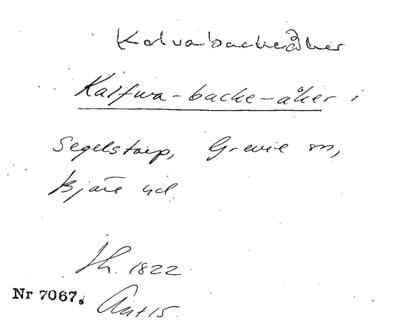 Kalvabackeåker
Kalfwa-backe-åker i
Segelstorp, Grevie sn,
Bjäre hd.
Sk. 1822
Nr 7067. Ant 15.